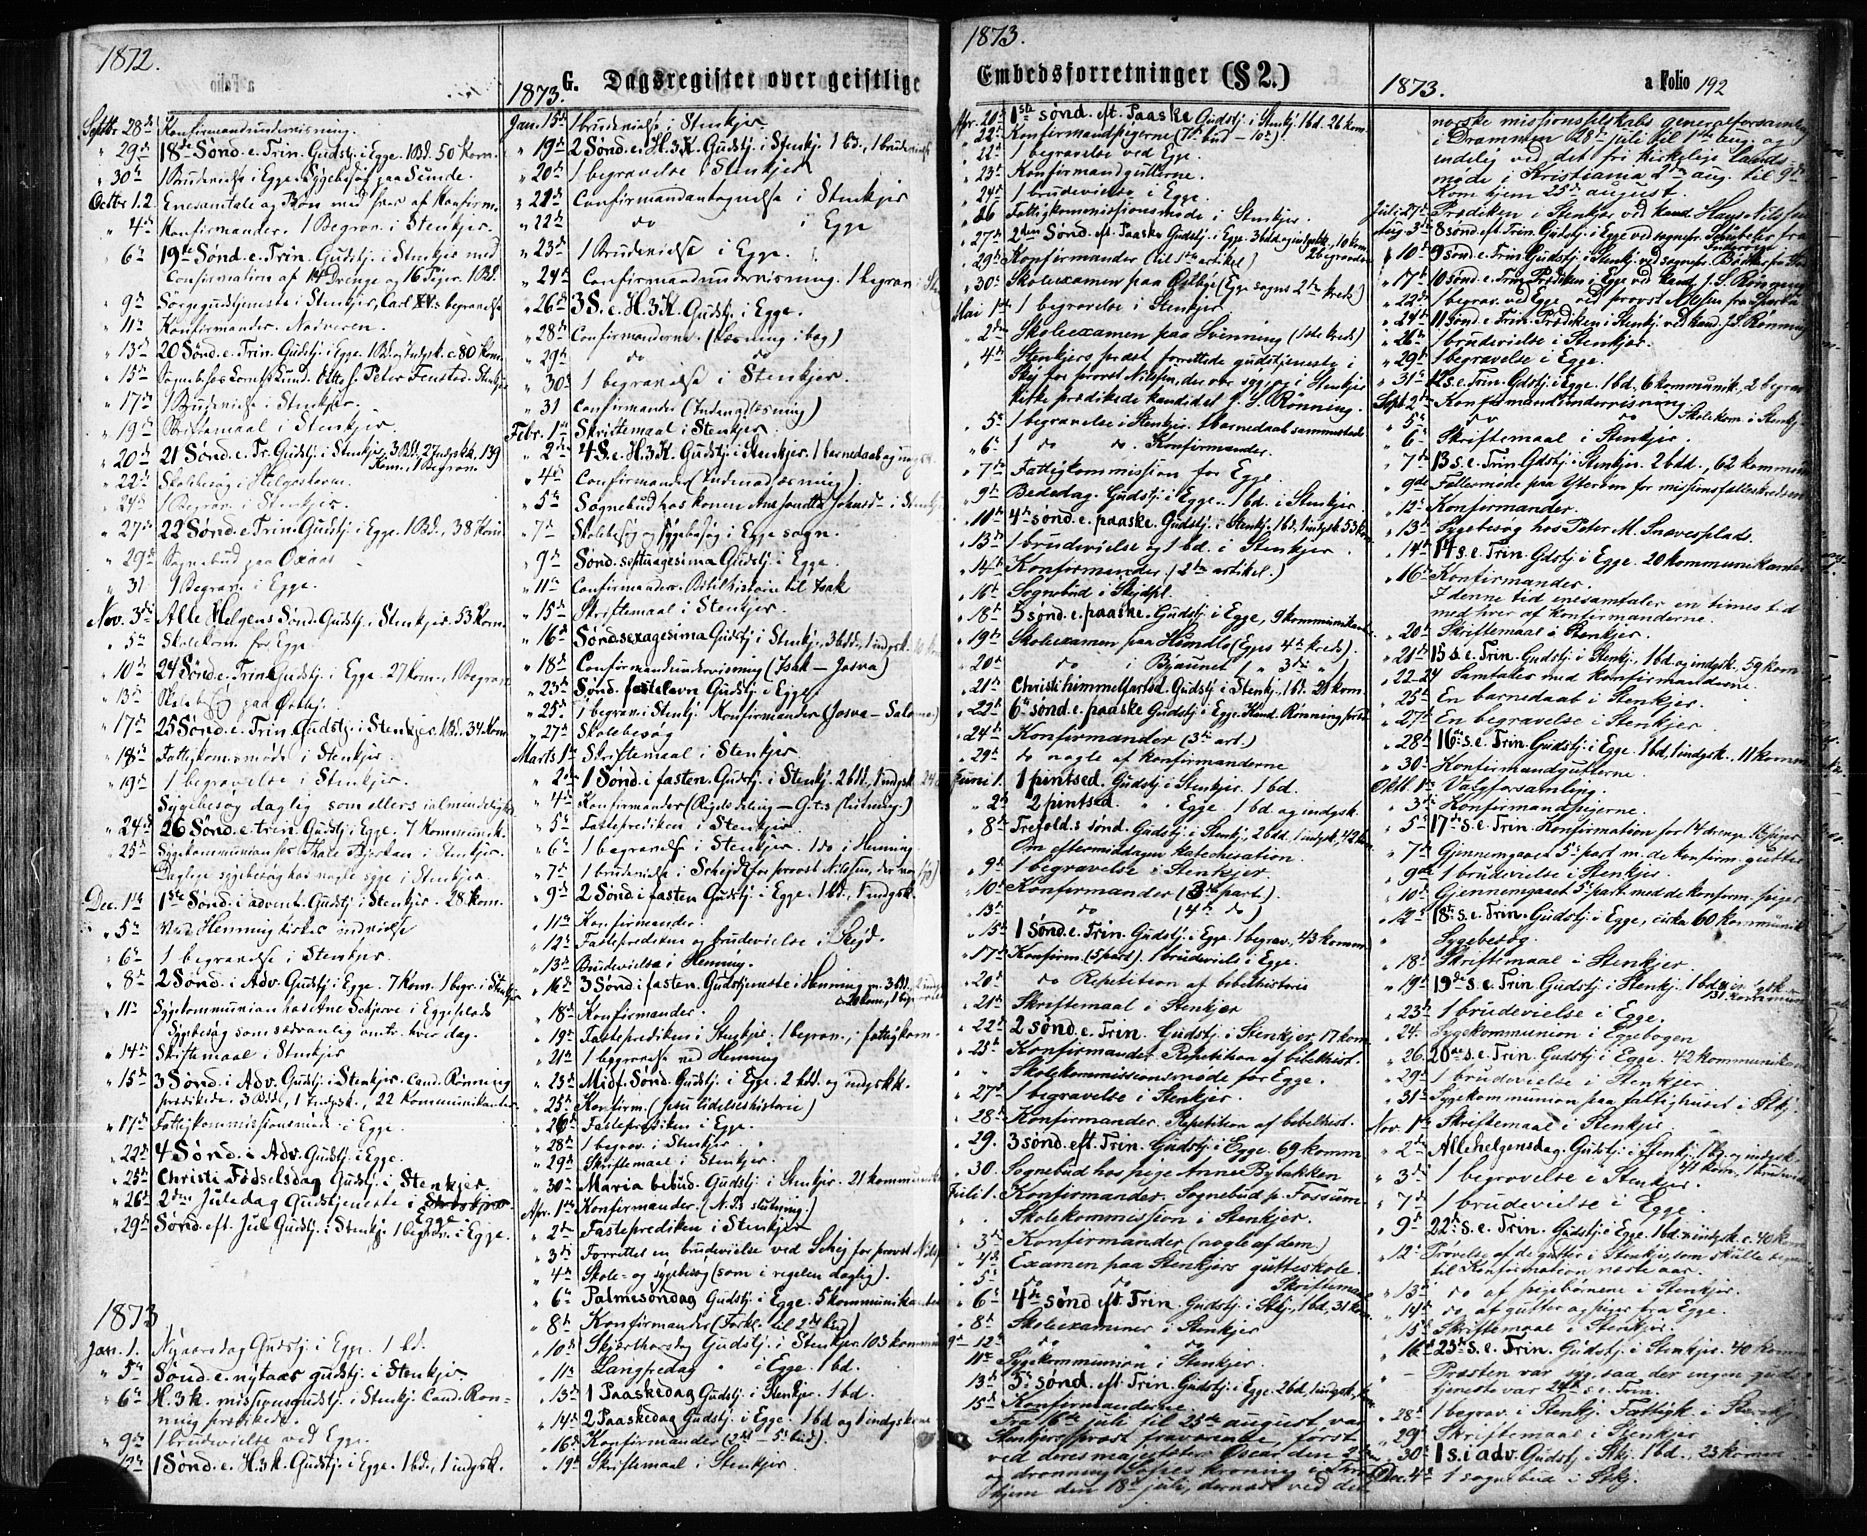 1872.
G. Dagsregister over geistlige
Septbr. 28de Konfirmandundervisning.
" 29de 18de Sønd. e. Trin. Gudstj. i Egge. 1 Bd. 50 Kom.
" 30te 1 Brudevielse i Egge. Sygebesøg paa Sunde.
Octbr. 1.2. Enesamtale og Bøn med hver af Konfirm.
" 4de Konfirmander. 1 Begrav. i Stenkjer.
" 6te 19de Sønd. e. Trin. Gudstj. i Stenkjer med
Confirmation af 14 Drenge og 16 Piger. 1 Bd.
" 9de Sørgegudstjeneste i Stenkjer, Carl XV.s begravelse
" 11te Konfirmander. Nadveren.
" 13de 20 Sønd. e. Trin. Gudstj. i Egge. 1 Bd. og Indgsk. c. 80 Kom.
" 15de Sognebud hos
" 17de 1 Brudevielse i Stenkjer.
" 19de Skriftemaal i Stenkjer.
" 20de 21 Sønd. e. Tr. Gudstj. i Stenkjer. 3 Bd. 2 Indgsk. 139
Kom. 1 Begrav.
" 22de Skolebesøg i
" 24de 1 Begrav. i Stenkjer.
" 27de 22 Sønd. e. Trin. Gudstj. i Egge. 1 Bd., 38 Kom.
" 29de Sognebud paa
" 31 1 Begrav. i Egge.
Nov. 3die Alle Helgens Sønd. Gudstj. i Stenkjer. 53 Kom.
" 5te Skolekom. for Egge.
" 10de 24 Sønd. e. Trin. Gudstj. i Egge. 27 Kom., 1 Begrav.
" 13de Skolebesøg paa Østbj.
" 17de 25 Sønd. e. Trin. Gudstj. i Stenkjer. 1 Bd. 34 Kom.
" 18de Fattigkom.møde i Stenkjer.
" 19de 1 begravelse i Stenkjer.
Sygebesøg daglig som ellers i almindelighed
" 24de 26 Sønd. e. trin. Gudstj. i Egge. 7 Kommunik.
" 25de Sygekommunion hos i Stenkjer.
Daglige sygebesøg hos nogle syge i Stenkjer.
Dec. 1ste 1ste Sønd. i advent. Gudstj. i Stenkjer. 28 kom.
" 5te Ved Henning kirkes indvielse
" 6te 1 begravelse i Stenkjer.
" 8de 2 Sønd. i Adv. Gudstj. i Egge. 7 Kom. 1 begr. i Stenkjer
" 11te Sygekommunion hos Ane Schjerve i Eggeplads
Sygebesøg som sædvanlig omtr. hver dag.
" 14de Skriftemaal i Stenkjer
" 15de 3 Sønd. i Adv. Gudstj. i Stenkjer. Cand. Rønning
prædikede. 3 Bd., 1 Indgsk., 22 Kommunikanter
" 17de Fattigkommissionsmøde i Egge.
" 22de 4 Sønd. i Adv. Gudstj. i Egge.
" 25de Christi Fødselsdag Gudstj. i Stenkjer.
" 26de 2den Juledag Gudstjeneste i Stenkjer
" 29de Sønd. eft. Jul Gudstj. i Stenkj. 1 begrav. i Egge.
1873
Jan. 1. Nyaarsdag Gudstj. i Egge. 1 bd.
" 5te Sønd. e. nytaar gudstj. i Stenkjer
" 6te H. 3 k. missionsgudstj. i Stenkj. Cand. Røn-
ning prædikede.
" 9de 1 brudevielse ved Egge.
" 12te 1 Sønd. e. H. 3 k. Gudstj. i Egge. 1 bd., 1 indgsk.
1873.
Jan. 15de 1 brudevielse i Stenkjer.
" 19de 2 Sønd. e. H. 3 K. Gudstj. i Stenkj. 1 bd., 1 brudevielse
" 20de 1 begravelse i Stenkjer
" 21de Confirmandantagelse i Stenkjer
" 22de do i Egge
" 23de 1 Brudevielse i Egge.
" 24de Confirmandundervisning. 1 begrav. i
" 26de 3 S. e. H. 3 K. Gudstj. i Egge.
" 28de Confirmanderne (læsning i bog)
" 29de do do
" 30te 1 begravelse i Stenkjer.
" 31 Confirmander (Indenadlæsning)
Febr. 1ste Skriftemaal i Stenkjer.
" 2den 4 S. e. H. 3 K. Gudstj. i Stenkjer. 1 barnedaab og
" 4de Confirmander (Indenadlæsning).
" 5te Sognebud hos konen
" 7de Skolebesøg og sygebesøg i Egge sogn.
" 9de Sønd. septuagesima Gudstj. i Egge.
" 11te Confirmander. Bibelhistorie til Isak
" 15de Skriftemaal i Stenkjer.
" 16de Sønd. sexagesima Gudstj. i Stenkj., 3 bdd., 1 indgsk.
" 18de Confirmandundervisning (Isak – Josva)
" 23de Sønd. fastelavn Gudstj. i Egge.
" 25de 1 begrav. i Stenkj. Konfirmander (Josva – Salomo)
" 27de Skolebesøg
Marts 1ste Skriftemaal i Stenkjer
" 2den 1 Sønd. i fasten. Gudstj. i Stenkj. 2 bdd., 1 indgsk. 24
" 4de Konfirmander (Rigets deling – G. t.s slutning.)
" 5te Fasteprediken i Stenkjer
" 6te 1 begravelse i Stenkjer. 1 do i Henning
" 7de 1 brudevielse i Schejd for provst Nilssen, der var syg
" 9de 2 Sønd i fasten Gudstj. i Egge. 1 bd., 1 indgsk.
" 11te Konfirmander.
" 12te Fasteprediken og brudevielse i Skejd.
" 13de Brudevielse i Henning.
" 16de 3 Sønd i fasten. Gudstjeneste i Henning
" 18de Konfirmander.
" 19de Fasteprediken i Stenkjer. 1 begrav., fattigkom.
" 21de 1 begravelse ved Henning
" 23de Midf. Sønd. Gudstj. i Egge. 2 bdd. og indgskk.
" 25de Konfirm. (Jesu lidelseshistorie)
" 26de Fasteprediken i Egge.
" 28de 1 begrav. i Stenkjer.
" 29de Skriftemaal i Stenkjer.
" 30te Maria bebud. Gudstj. i Stenkjer. 21 kommunik.
Apr. 1ste Konfirmander. (N. T.s slutning.)
" 2den Fasteprediken i Stenkjer
" 3die Forrettet en brudevielse ved Schej for provst Nilssen
" 4de Skole- og sygebesøg (som i regelen daglig).
" 6te Palmesøndag Gudstj. i Egge. 5 kommunikanter
" 8de Konfirmander (Forkl. til 2det bud)
" 10de Skjærthorsdag Gudstj. i Stenkjer. 103 kommun
" 11te Langfredag " i Egge. 1 bd.
" 13de 1 Paaskedag Gudstj. i Stenkjer. 1 bd.
" 14de 2 Paaskedag Gudstj. i Egge. 1 bd og 1 indgskone
" 16de Konfirmander (2det – 5te bud).
" 19de Skriftemaal i Stenkjer.
1873.
Embedsforretninger (§ 2.)
Apr. 20de 1ste sønd. eft. Paaske Gudstj. i Stenkj. 1 bd. 26 kom
" 22de Konfirmandpigerne (7de bud – 10de).
" 22de 1 begravelse ved Egge.
" 23de Konfirmandgutterne.
" 24de 1 brudevielse i Egge.
" 26 Fattigkommissionsmøde i Stenkjer.
" 27de 2den Sønd. eft. Paaske Gudstj. i Egge. 3 bdd. og indgskk, 10 kom
2 begravelser
" 29de Konfirmander (til 1ste artikel)
" 30te Skoleexamen paa Østbye (Egge sogns 2den kreds)
Mai 1ste 1 begravelse i Stenkjer.
" 2den Skoleexamen paa Svenning (1ste kreds)
" 4de Stenkjers præst forrettede gudstjeneste i
Skej for provst Nilssen, der var syg, og i Stenkjer
kirke prædikede kandidat J. S. Rønning.
" 5te 1 begravelse i Stenkjer. 1 barnedaab sammesteds
" 6te 1 do do. Konfirmander.
" 7de Fattigkommission for Egge.
" 9de Bededag. Gudstj. i Egge. 1 bd. i Stenkjer.
" 11te 4de sønd. e. paaske. Gudstj. i Stenkj. 1 bd, 1 indgsk. 53 kom
" 13de 1 brudevielse og 1 bd. i Stenkjer.
" 14de Konfirmander. (2den artikel.)
" 16de Sognebud i Skejdpl.
" 18de 5 sønd. e. paaske. Gudstj. i Egge, 9 kommunikanter
" 19de Skoleexamen paa Humdlo (Egges 4de kreds).
" 20de do i Byaunet ( " 3die " )
" 21de Christi himmelfartsd. Gudstj. i Stenkj., 1 bd. 21 kom.
" 22de 6te sønd. e. paaske Gudstj. i Egge. Kand. Rønning
" 24de Konfirmander (3die art.)
" 29de do nogle af konfirmanderne
Juni 1. 1 pintsed. Gudstj. i Stenkjer. 1 bd.
" 2den 2 pintsed. " " Egge. 1 bd og indgsk.
" 8de Trefold.s sønd. Gudstj. i Stenkj., 2 bdd, 1 indgsk, 42 kom
Om eftermiddagen katechesation.
" 9de 1 begravelse i Stenkjer.
" 10de Konfirmander (3die part).
" 13de do (4de do)
" 15de 1 Sønd. e. Trin. Gudstj. i Egge. 1 begrav, 43 komm.
" 17de Konfirm. (5 part). 1 brudevielse i Egge.
" 20de do Repetition af bibelhistorie
" 21de Skriftemaal i Stenkjer
" 22de 2 sønd. e. Trin. Gudstj. i Stenkjer, 17 kom
" 25de Konfirmander. Repetition af bibelhist.
" " Skolekommissionsmøde for Egge.
" 27de 1 begravelse i Stenkjer.
" 28de Konfirmander. Repetition af bibelhist.
" 29. 3 sønd. eft. Trin. Gudstj. i Egge 69 komm
" 30. Sognebud hos pige Anne Bybakken
Juli 1. Konfirmander. Sognebud p. Fossum.
" . Skolekommission i Stenkjer.
" 3die Konfirmander (nogle af dem)
" 4de Examen paa Stenkjers gutteskole.
" 5te do do Skriftemaal
" 6te 4de sønd eft. Trin. Gudstj. i Stkj., 1 bd, 31 kom
" 8de Skoleexaminer i Stenkjer
9de – 12te do do
" 11te Sygekommunion i Stenkjer.
" 13de 5te sønd. eft. Trin. Gudstj. i Egge. 2 bd, 1 indgsk,
" 15de Konfirmanderne.
Fra 16de juli til 25de august var
Stenkjers præst fraværende først
ved deres majestæter Oscar den 2den
og dronning Sofies kroning i Thrond-
hjem den 18de juli, dernæst ved det
1873.
a Folio 192
norske missionsselskabs generalforsamling
i Drammen 28de juli til 1ste aug. og
endelig ved det fri kirkelige lands-
møde i Kristiania 2den aug. til 9de
Kom hjem 25de august.
Juli 27de Prædiken i Stenkjer ved kand. Hans Nils
Aug. 3die 8 sønd eft. Trin. Gudstj. i Egge ved sognepr. Schübeler fra
Inderøen
" 10de 9 sønd e. Trin. Gudstj. i Stenkj. ved sognepr. Bødtker fra
" 17de 10 sønd e. Trin. Prædiken i Egge ved kand. J. S. Rønning
" 22de 1 begrav. ved Egge ved provst Nilssen fra Sparbu
" 24de 11 Sønd e. Trin. Prædiken i Stenkj. ved kand. J. S. Rønning
" 26de 1 brudevielse i Stenkjer.
" 29de 1 begravelse i Egge.
" 31te 12 s. e. Trin. Gdstj. i Egge. 1 bd, 6 kommunik., 2 begrav
Sept. 2den Konfirmandundervisning.
" 5te do do Skolekom. i Stenkj
" 6te Skriftemaal i Stenkjer.
" 7de 13 s. e. Trin. Gdstj. i Stenkjer. 2 bdd., 62 kommun
" 9de Fællesmøde paa Ytterøen for missionsfælleskredsen
" 12te Konfirmander.
" 13de Sygebesøg hos Peter M. Snavesplads.
" 14de 14 s. e. Trin. Gdstj. i Egge. 20 kommunikanter
" 16de Konfirmander.
I denne tid enesamtaler en times tid
med hver af konfirmanderne.
" 20de Skriftemaal i Stenkjer.
" 21de 15 s. e. Trin. Gudstj. i Stenkj., 1 bd og indgsk, 59 kom
" 22–24 Samtaler med konfirmanderne.
" 25de En barnedaab i Stenkjer.
" 27de En begravelse i Stenkjer
" 28de 16de s. e. Trin. Gudstj. i Egge. 1 bd, 1 indgsk., 11 komm
" 30te Konfirmandgutterne.
Oktb. 1ste Valgforsamling.
" 3die Konfirmandpigerne.
" 5te 17de s. e. Trin. Konfirmation for 14 drenge, 16 piger
" 7de Gjennemgaaet 5te part m. de konfirm. gutter
" 9de 1 brudevielse i Stenkjer.
" 10de Gjennemgaaet 5te part med de konfirm. piger
" 12te 18de s. e. Trin. Gudstj. i Egge, cirka 60 kommunik
" Sygebesøg.
" 18de Skriftemaal i Stenkjer
" 19de 19de s. e. Trin. Gudstj. i Stenkj. 1 bd og indgsk.
131 kommun
" 23de 1 brudevielse i Egge.
" 24. Sygekommunion i Eggebogen
" 26. 20de s. e. Trin. Gudstj. i Egge. 42 kommunikan
" 29de 1 brudevielse i Stenkjer.
" 31te Sygekommunion paa fattighuset i Stkj.
Nov. 1ste Skriftemaal i Stenkjer
" 2den Allehelgensdag Gudstj. i Stenkj. 1 bg. og indgsk
41 kom, 1 brudev
" 3die 1 begravelse i Stenkjer.
" 7de 1 brudevielse i Egge.
" 9de 22de s. e. Trin. Gudstj. i Egge. 1 bd. m indgsk c. 40 kom
" 12te Prøvelse af de gutter i Stenkjer, som skulle
til Konfirmation næste aar.
" 13de do af pigebørnene i Stenkjer.
" 14de do af gutter og piger fra Egge.
" 15de Skriftemaal i Stenkjer.
" 16de 23de s. e. Trin. Gudstj. i Stenkjer. 40 komm
– Præsten var syg, saa der ingen guds-
tjeneste var 24de s. e. Trin.
" 28de 1 begrav. i Stenkj. Fattigk. i Stenkj
" 29de Skriftemaal i Stenkjer
" 30te 1 s. i adv. Gudstj. i Stkj. 1 bd., 23 komm
Dec. 4de 1 sognebud i Stkj.